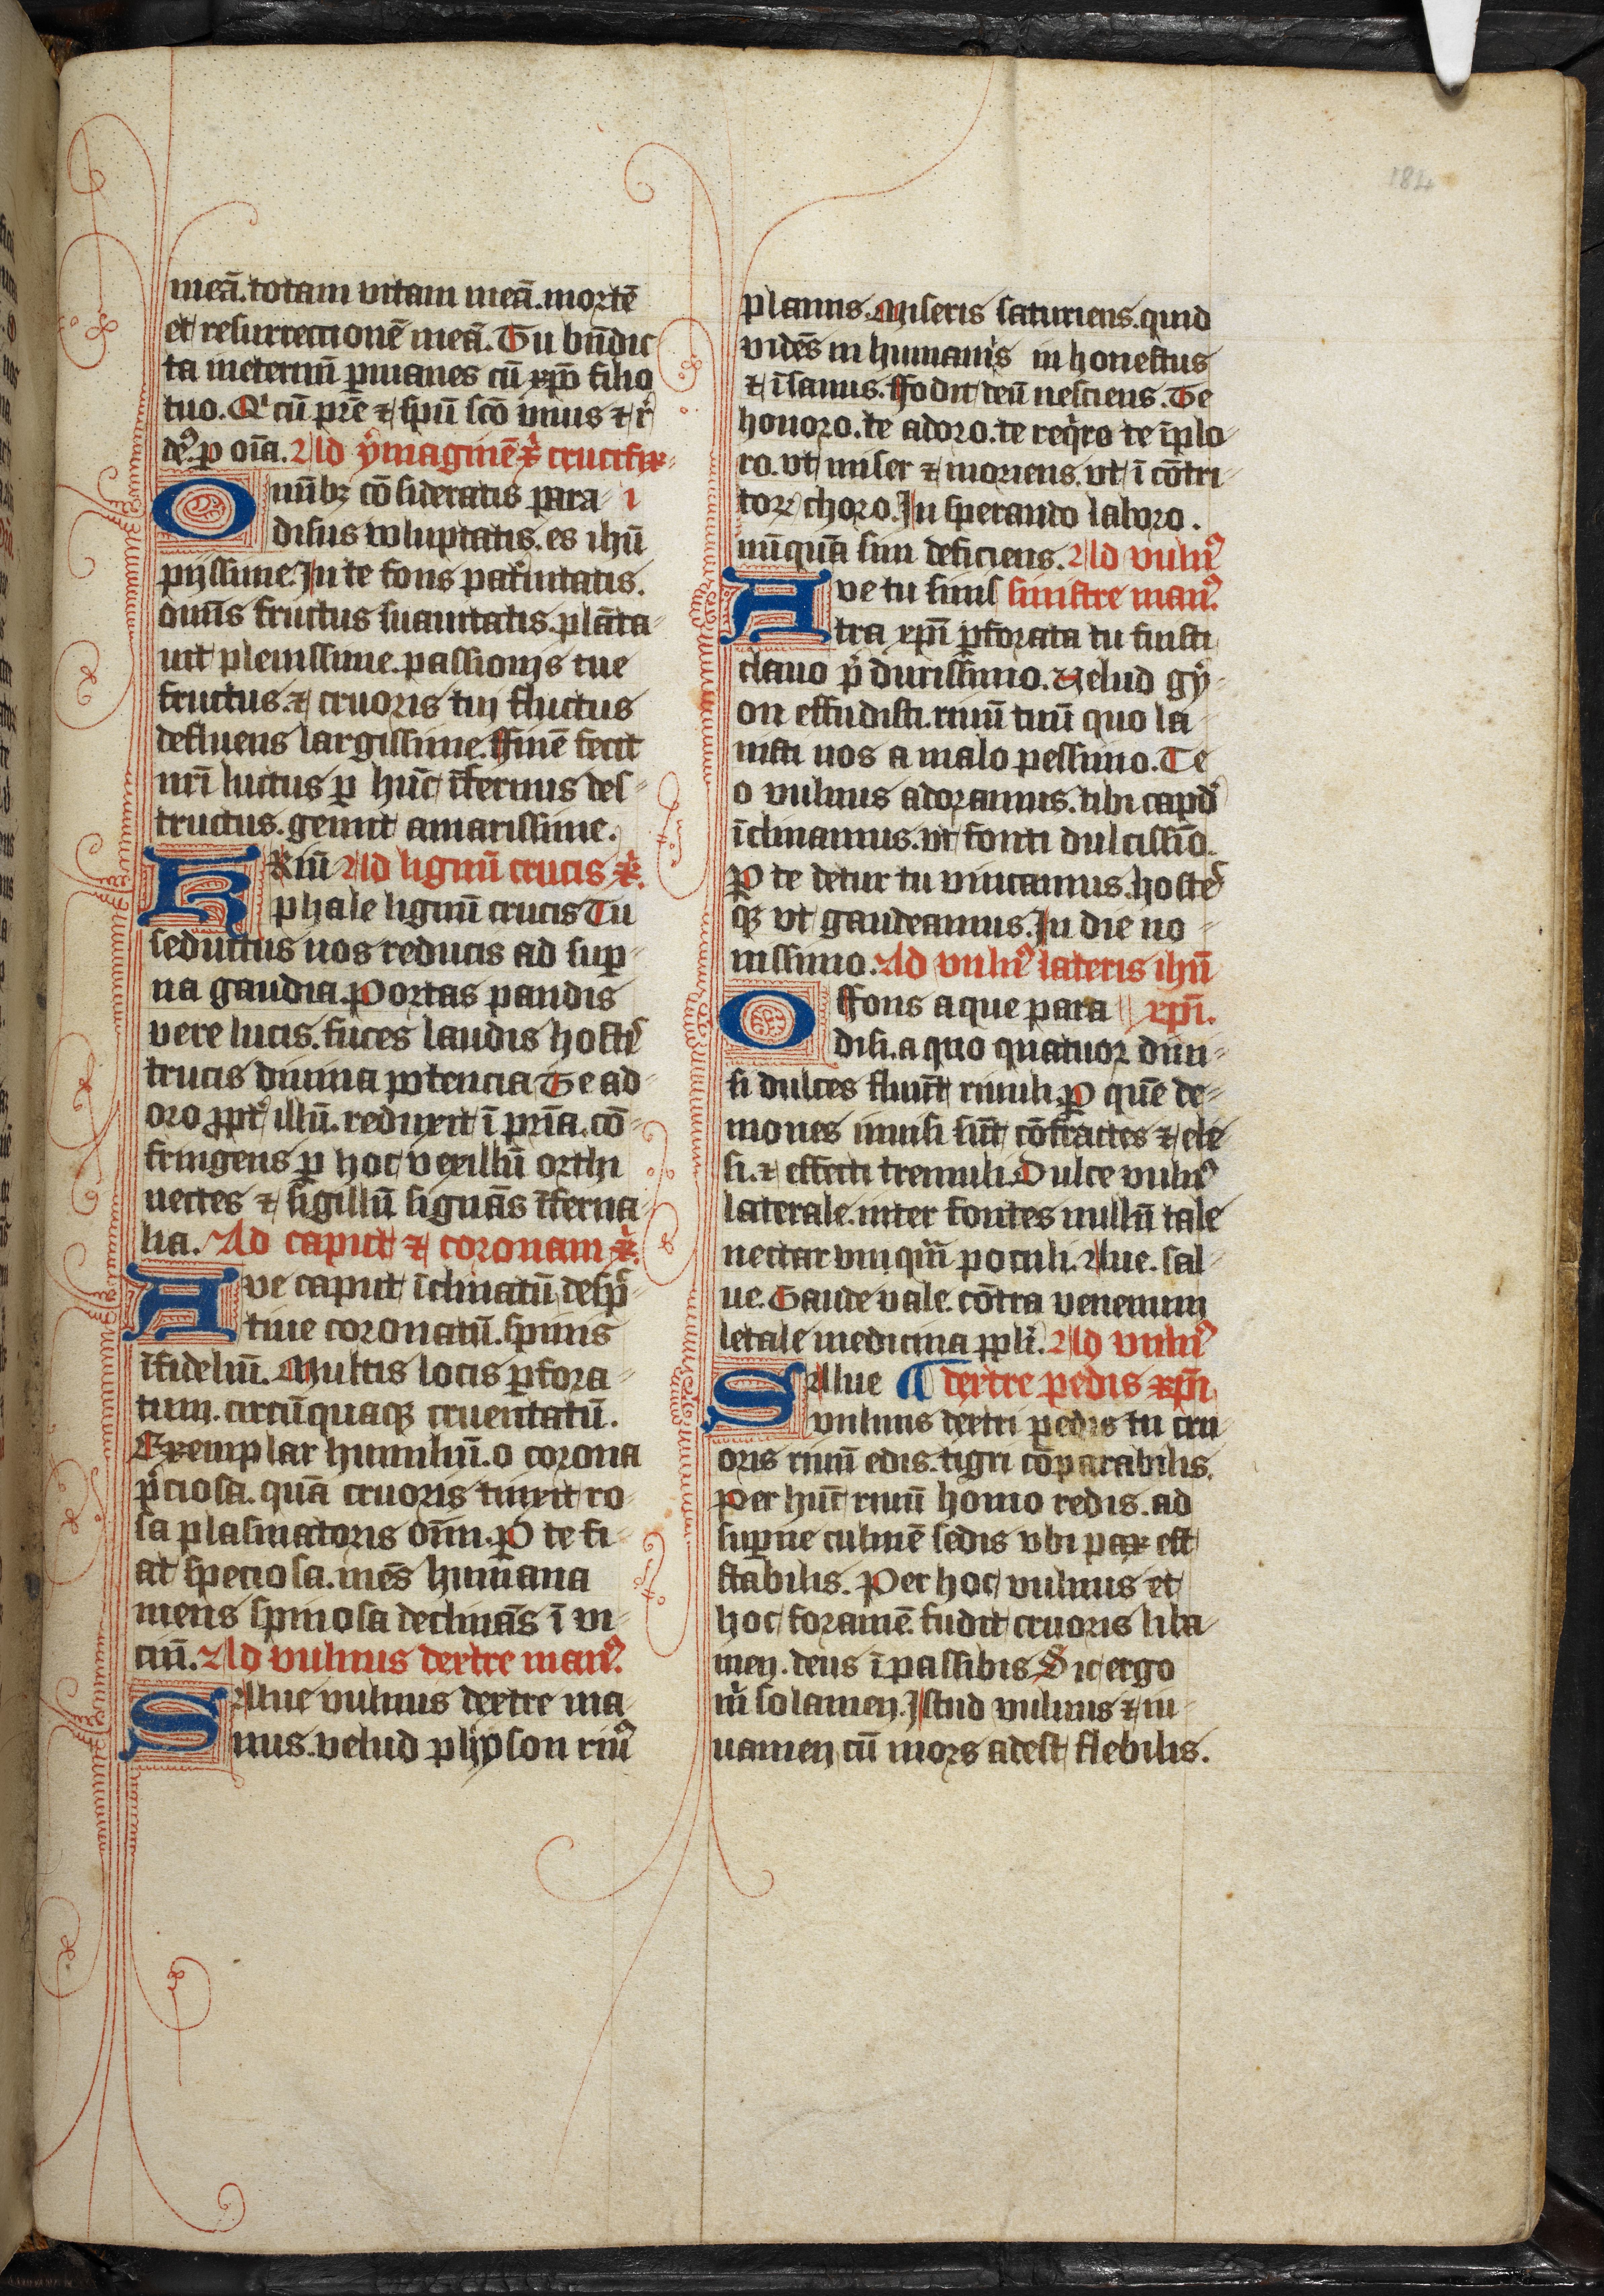 184
meā. totam vitam meā. mortē
et resurrectionē meā. Tu bn̄dic
ta ineternū ꝑmanes cū xp̄o filio
tuo. Qͥ cū pr̄e ⁊ spū scō vnus ⁊ rͥ
deꝰ. ꝑ oīa. Ad ymaginē xͥ crucifix-
Omībꝫ cōsideratis para- i
disus voluptatis. es ihū
pijssime. In te fons paternitatis.
omīs fructus suauitatis. plāta-
uit plenissime. passionis tue
fructus. ⁊ cruoris tui fluctus
defluens largissime. ffinē fecit
nr̄i luctus ꝑ hūc īfernus des-
tructus. gemit amarissime.
Triū Ad lignū crucis xͥ.
phale lignū crucis Tu
seductus nos reducis ad suꝑ-
na gaudia. Portas pandis
vere lucis. fuces laudis hostꝭ
trucis diuina potencia Te ad-
oro ꝓptͬ illū. reduxit ī pr̄ia. cō-
fringens ꝑ hoc vexillū orthi
uectes ⁊ sigillū signās īferna-
lia. Ad caput ⁊ coronam xͥ.
Ave caput īclinatū despͥ
tiue coronatū. spinis
īfideliū. Multis locis ꝑfora-
tum. circūquaqꝫ cruentatū.
Exemplar humiliū. o corona
p̄ciosa. quā cruoris tinxit ro-
sa plasmatoris om̄i. ꝑ te fi-
at speciosa. mēs humana
mens spinosa declinās ī vi-
ciū. Ad vulnus dextre manꝰ.
SAlue vulnus dextre ma-
nus. velud physon riuꝰ
planus. Miseris saturiens. quid
vidēs in humanis in honestus
⁊ īsanus. ffodit teū nesciens. Te
honoro. te adoro. te reqͥro te īplo-
ro. vt miser ⁊ moriens. vt ī cōtri-
toꝝ choro. In sperando laboro.
nūquā sim deficiens. Ad vulnꝰ
Ave tu sinis sinistre manꝰ.
tra xp̄i ꝑforata tu fuisti
clauo p̄ durissimo. Velud gy-
on effudisti. riuū tuū quo la-
uisti nos a malo pessimo. Te
o vulnus adoramus. tibi capd
īclinamus. vt fonti dulcissīo.
ꝑ te detur tu vincamus. hostēs
qꝫ vt gaudeamus. In die no-
uissimo. Ad vulnꝰ lateris ihū
O ffons aque para xp̄i.
disi. a quo quatuor diui-
si dulces fluūt riuuli. ꝑ quē de-
mones inuisi sūt cōfractes ⁊ ele-
si. ⁊ effecti tremuli. Dulce vulnꝰ
laterale. inter fontes nullū tale
nectar vmqͣm poculi. Aue. sal-
ue. Gaude vale. cōtra venenum
letale medicina ꝓpli. Ad vulnꝰ
SAlue ¶ dextre pedis xp̄i
vulnus dextri pedis tu cru-
oris riuū edis. tigri cōparabilis.
Per hūc riuū homo redis. ad
suꝑne culmē sedis vbi pax est
stabilis. Per hoc vulnus et
hoc foramē fudit cruoris liba-
men. deus īpassibilis Sit ergo
mͥ solamen. Istud vulnus ⁊ iu-
uamen cū mors adest flebilis.